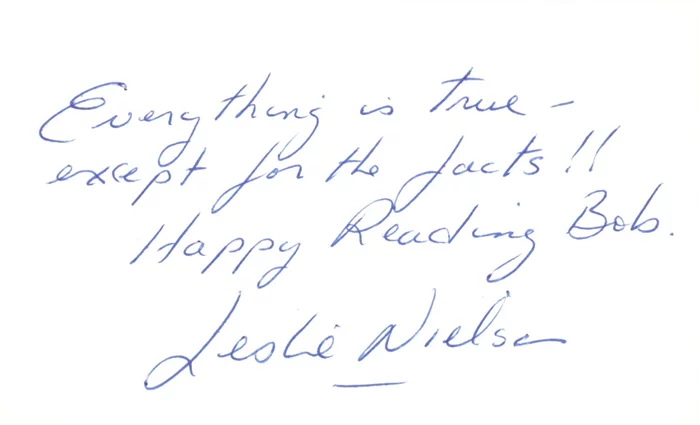 Everything is true –
except for the facts!!
Happy Reading Bob.
Leslie Nielsen